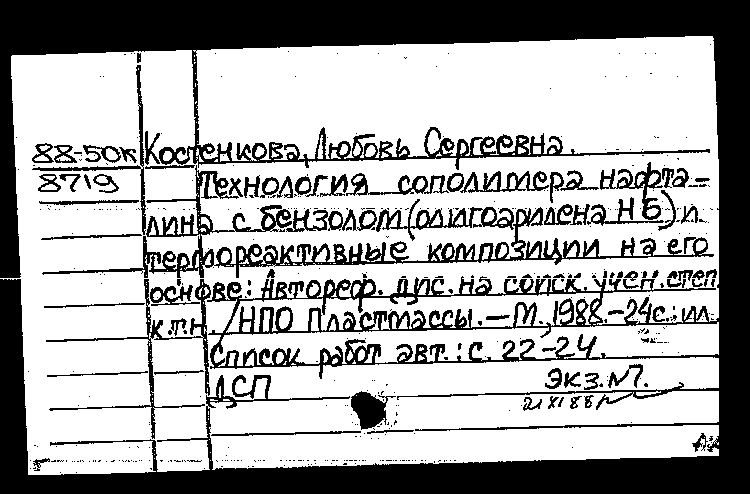 88-50к Костенкова, Любовь Сергеевна.
8719 Технология сополимера нафта-
лина с бензолом (олигоарилена НБ) и
термореактивные композиции на его
основе: Автореф. дис. на соиск. учен. степ.
к.т.н. /НПО Пластмассы. – М., 1988. – 24с.: ил.
Список работ авт.: с. 22-24.
ДСП Экз. №7.
21 XI 88